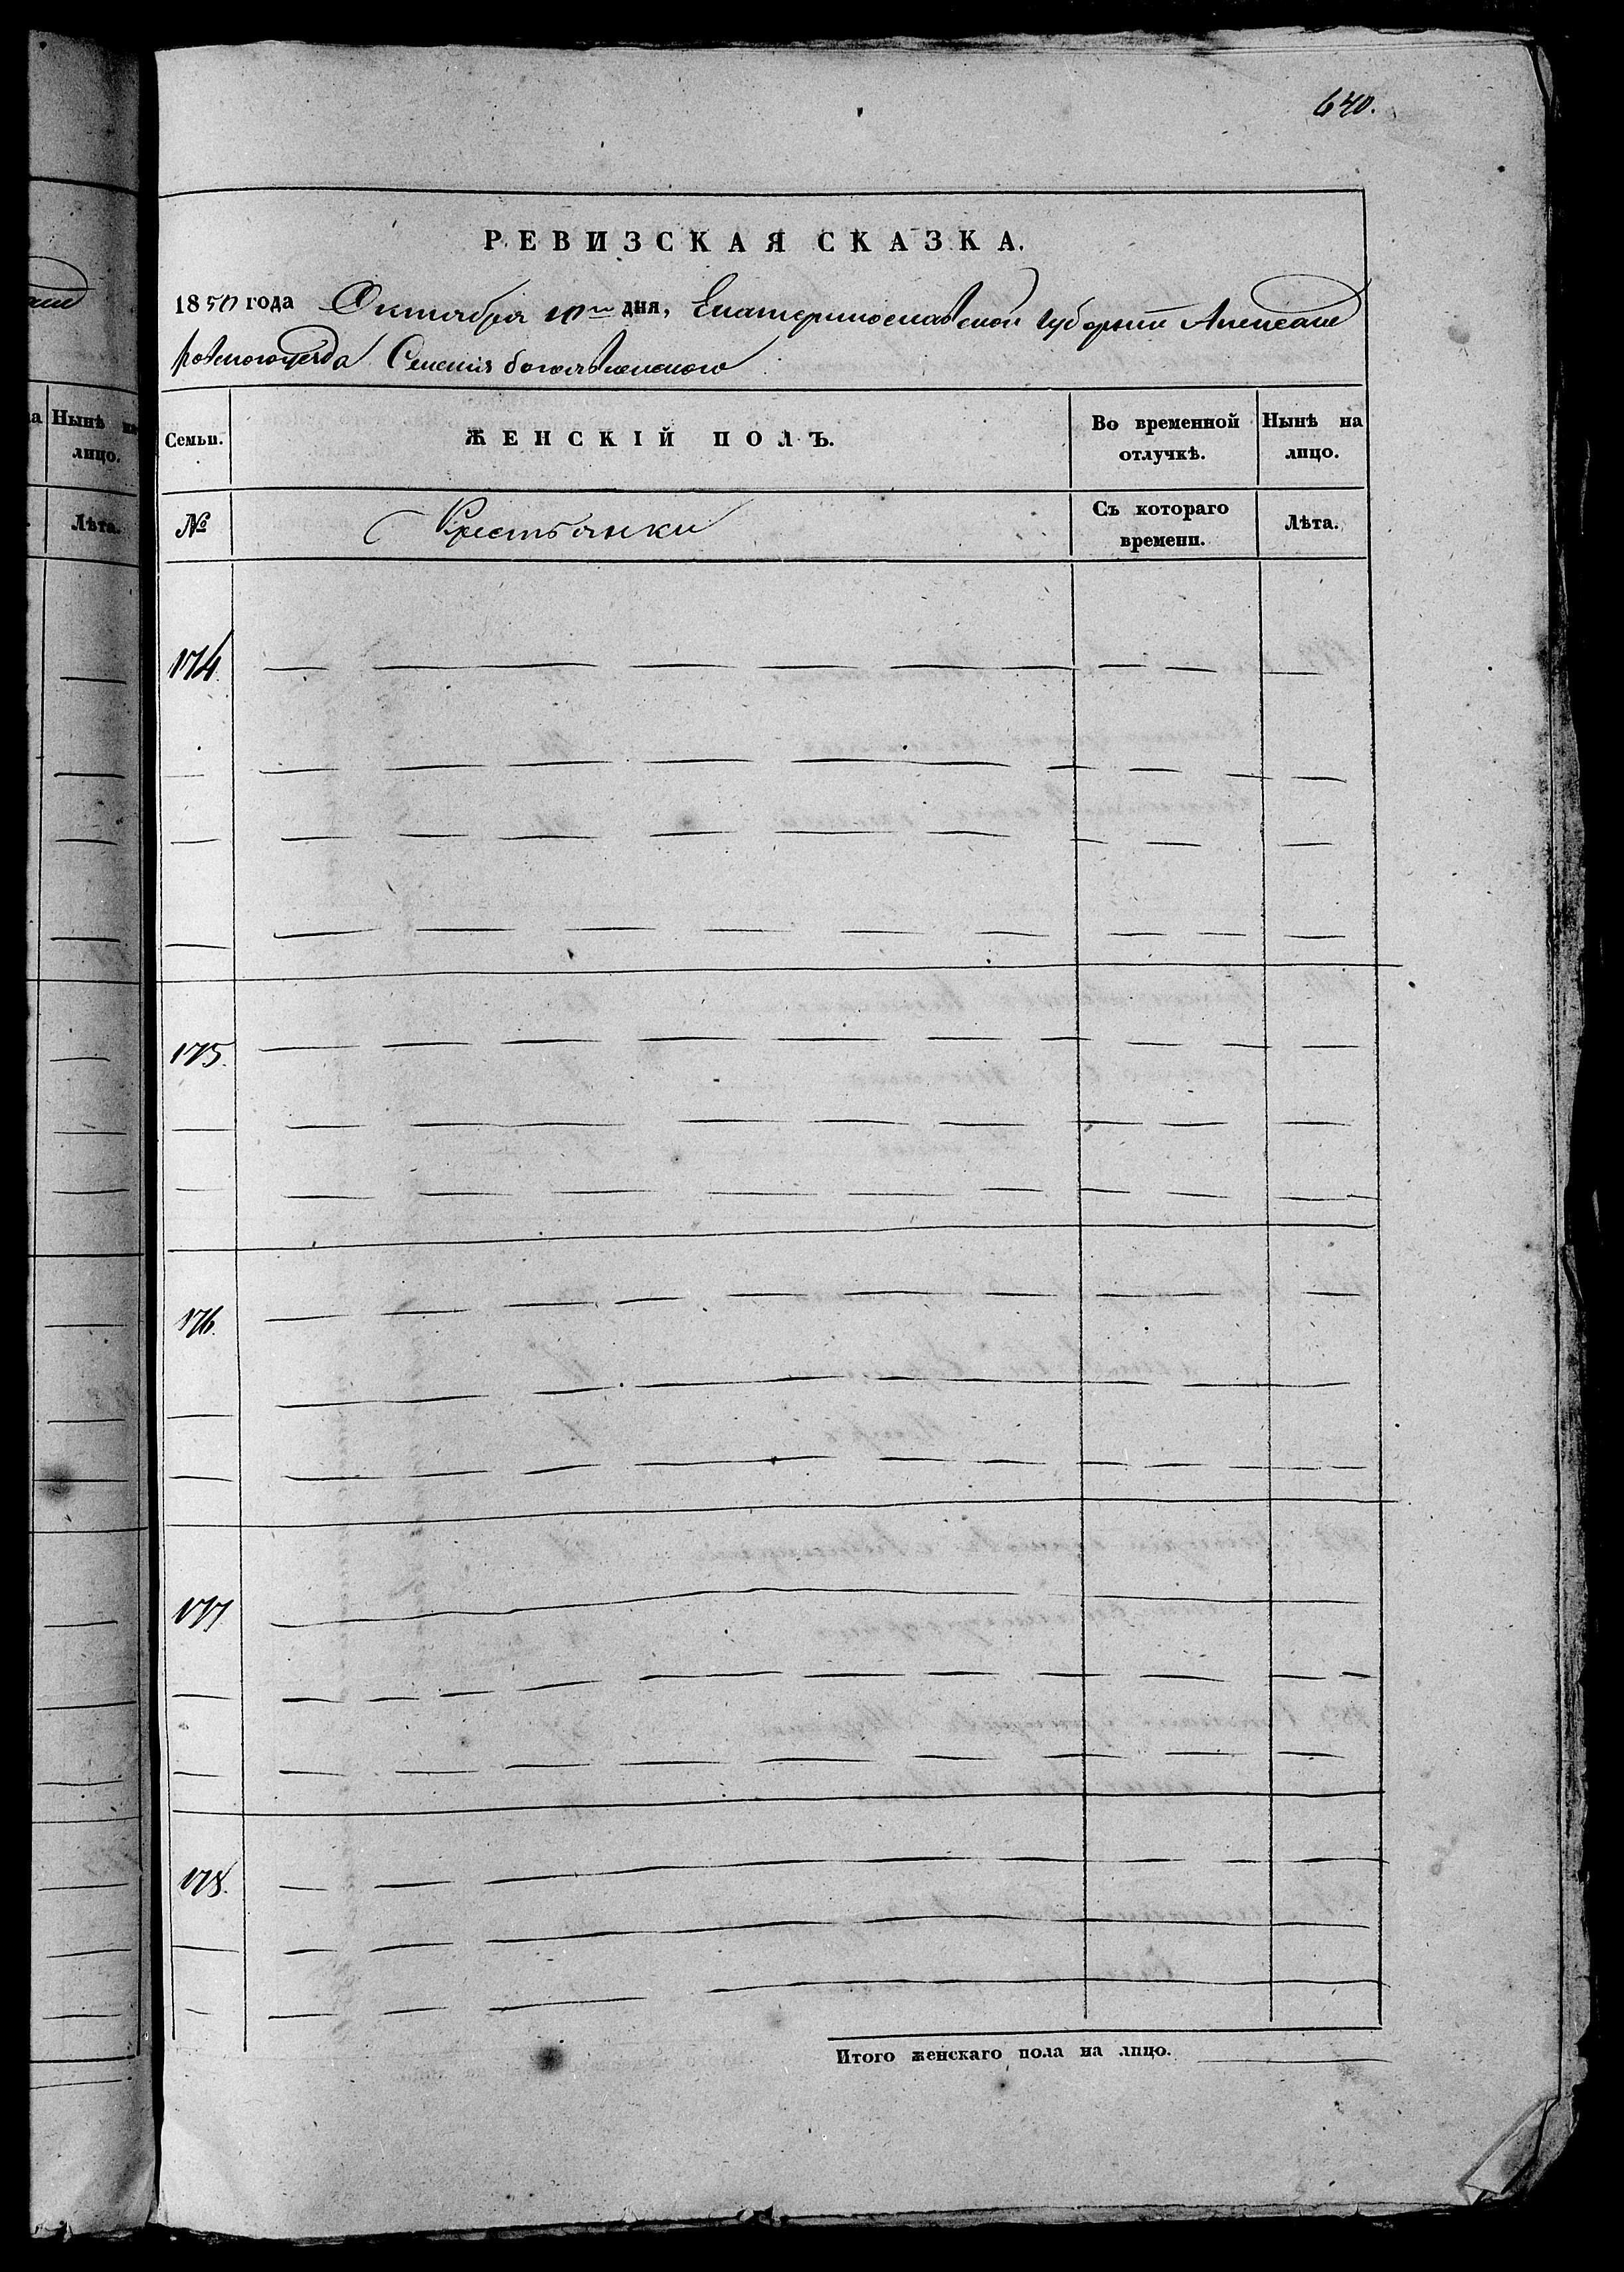 640.
РЕВИЗСКАЯ СКАЗКА.
1850 года Октября 10го дня, Екатеринославской губернии Алексан
ровского уезда Селения богоявленского
а Нынѣ на
лицо.
Лѣта.
Семьи.
ЖЕНСКІЙ ПОЛЪ.
Во временной
отлучкѣ.
Нынѣ на
лицо.
№
Крестьянки
Съ котораго
времени.
Лѣта.
174
175.
176.
177
178.
Итого женскаго пола на лицо.